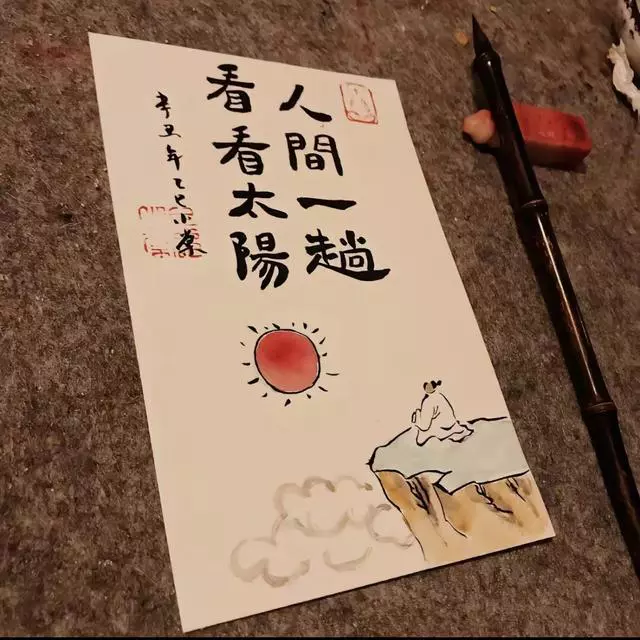 人間一趟
看看太陽
辛丑年